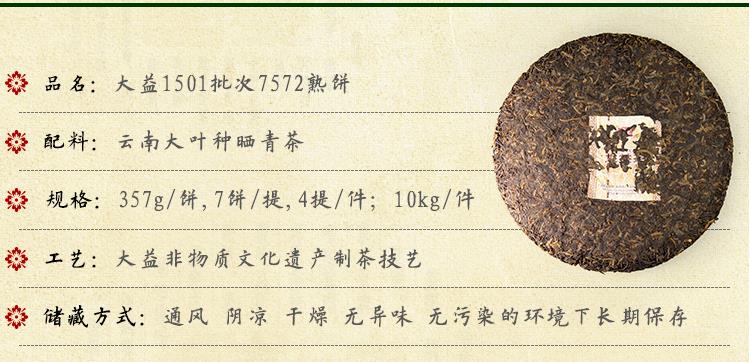 品名：大益1501批次7572熟饼
配料：云南大叶种晒青茶
规格：357g/饼,7饼/提,4提/件；10kg/件
工艺：大益非物质文化遗产制茶技艺
储藏方式：通风 阴凉 干燥 无异味 无污染的环境下长期保存